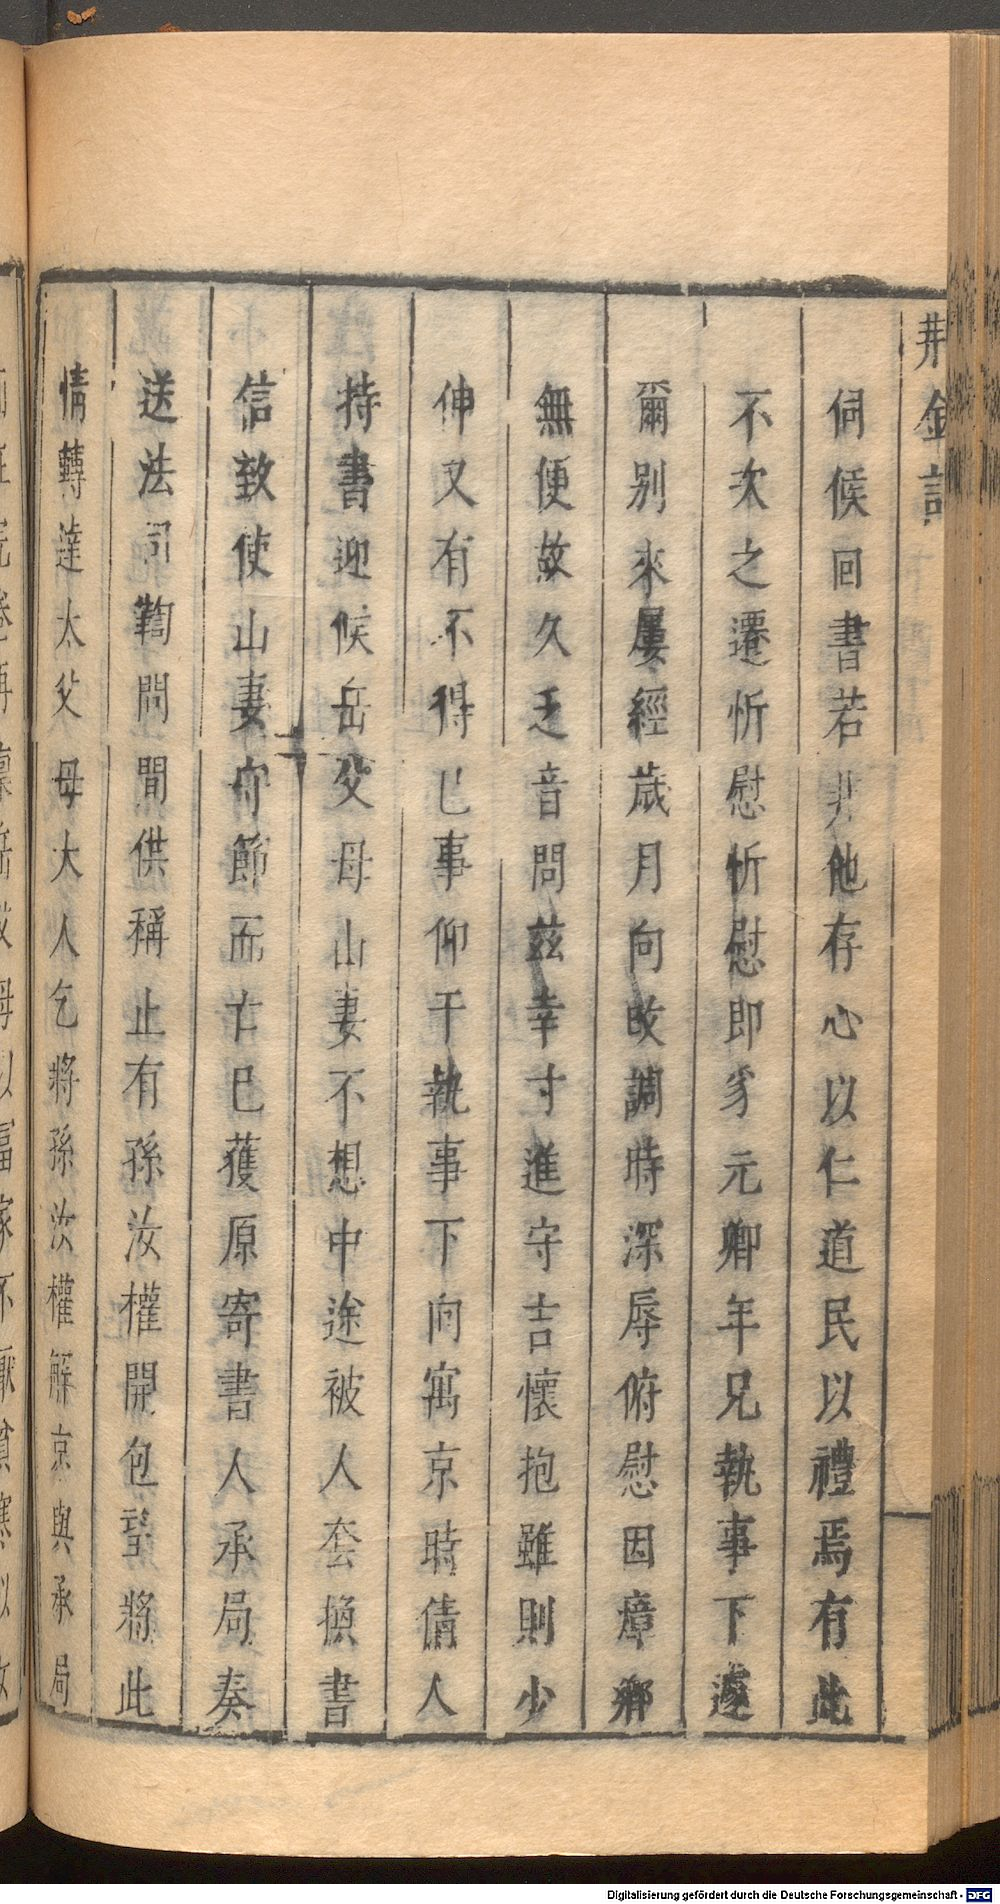 荆釵記
伺候回書若非他存心以仁道民以禮焉有此
不次之遷忻慰忻慰即豸元卿年兄執事下遽
爾别來屢經歲月向改調時深辱俯慰因瘴鄉
無便故久乏音問茲幸寸進守吉懷抱雖則少
伸又有不得已事仰干執事下向寓京時倩人
持書迎候岳父母山妻不想中途被人套換書
信致使山妻守節而亡巳獲原寄書人承局奏
送法司鞫問間供稱止有孫汝權開包望將此
情轉達太父母大人乞將孫汝權解京與承局
Digitalisierung gefördert durch die Deutsche Forschungsgemeinschaft - DFG